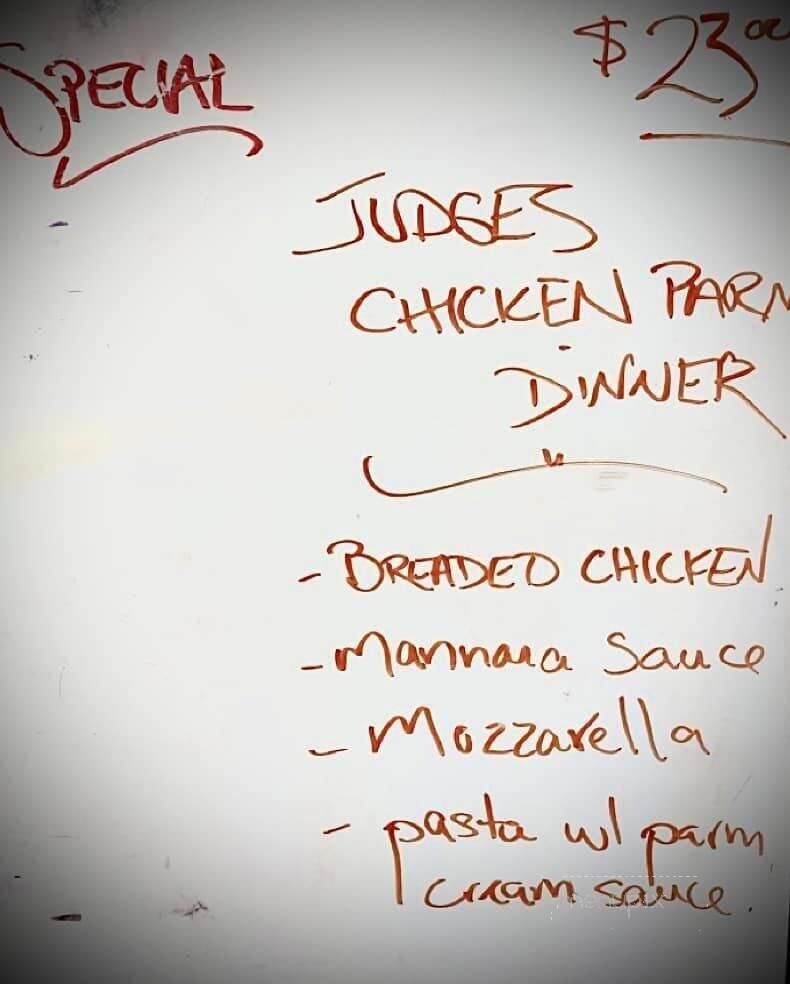 SPECIAL
$23.00
JUDGES
CHICKEN PARM
DINNER
- BREADED CHICKEN
- Marinara Sauce
- Mozzarella
- pasta w/ parm
cream sauce.